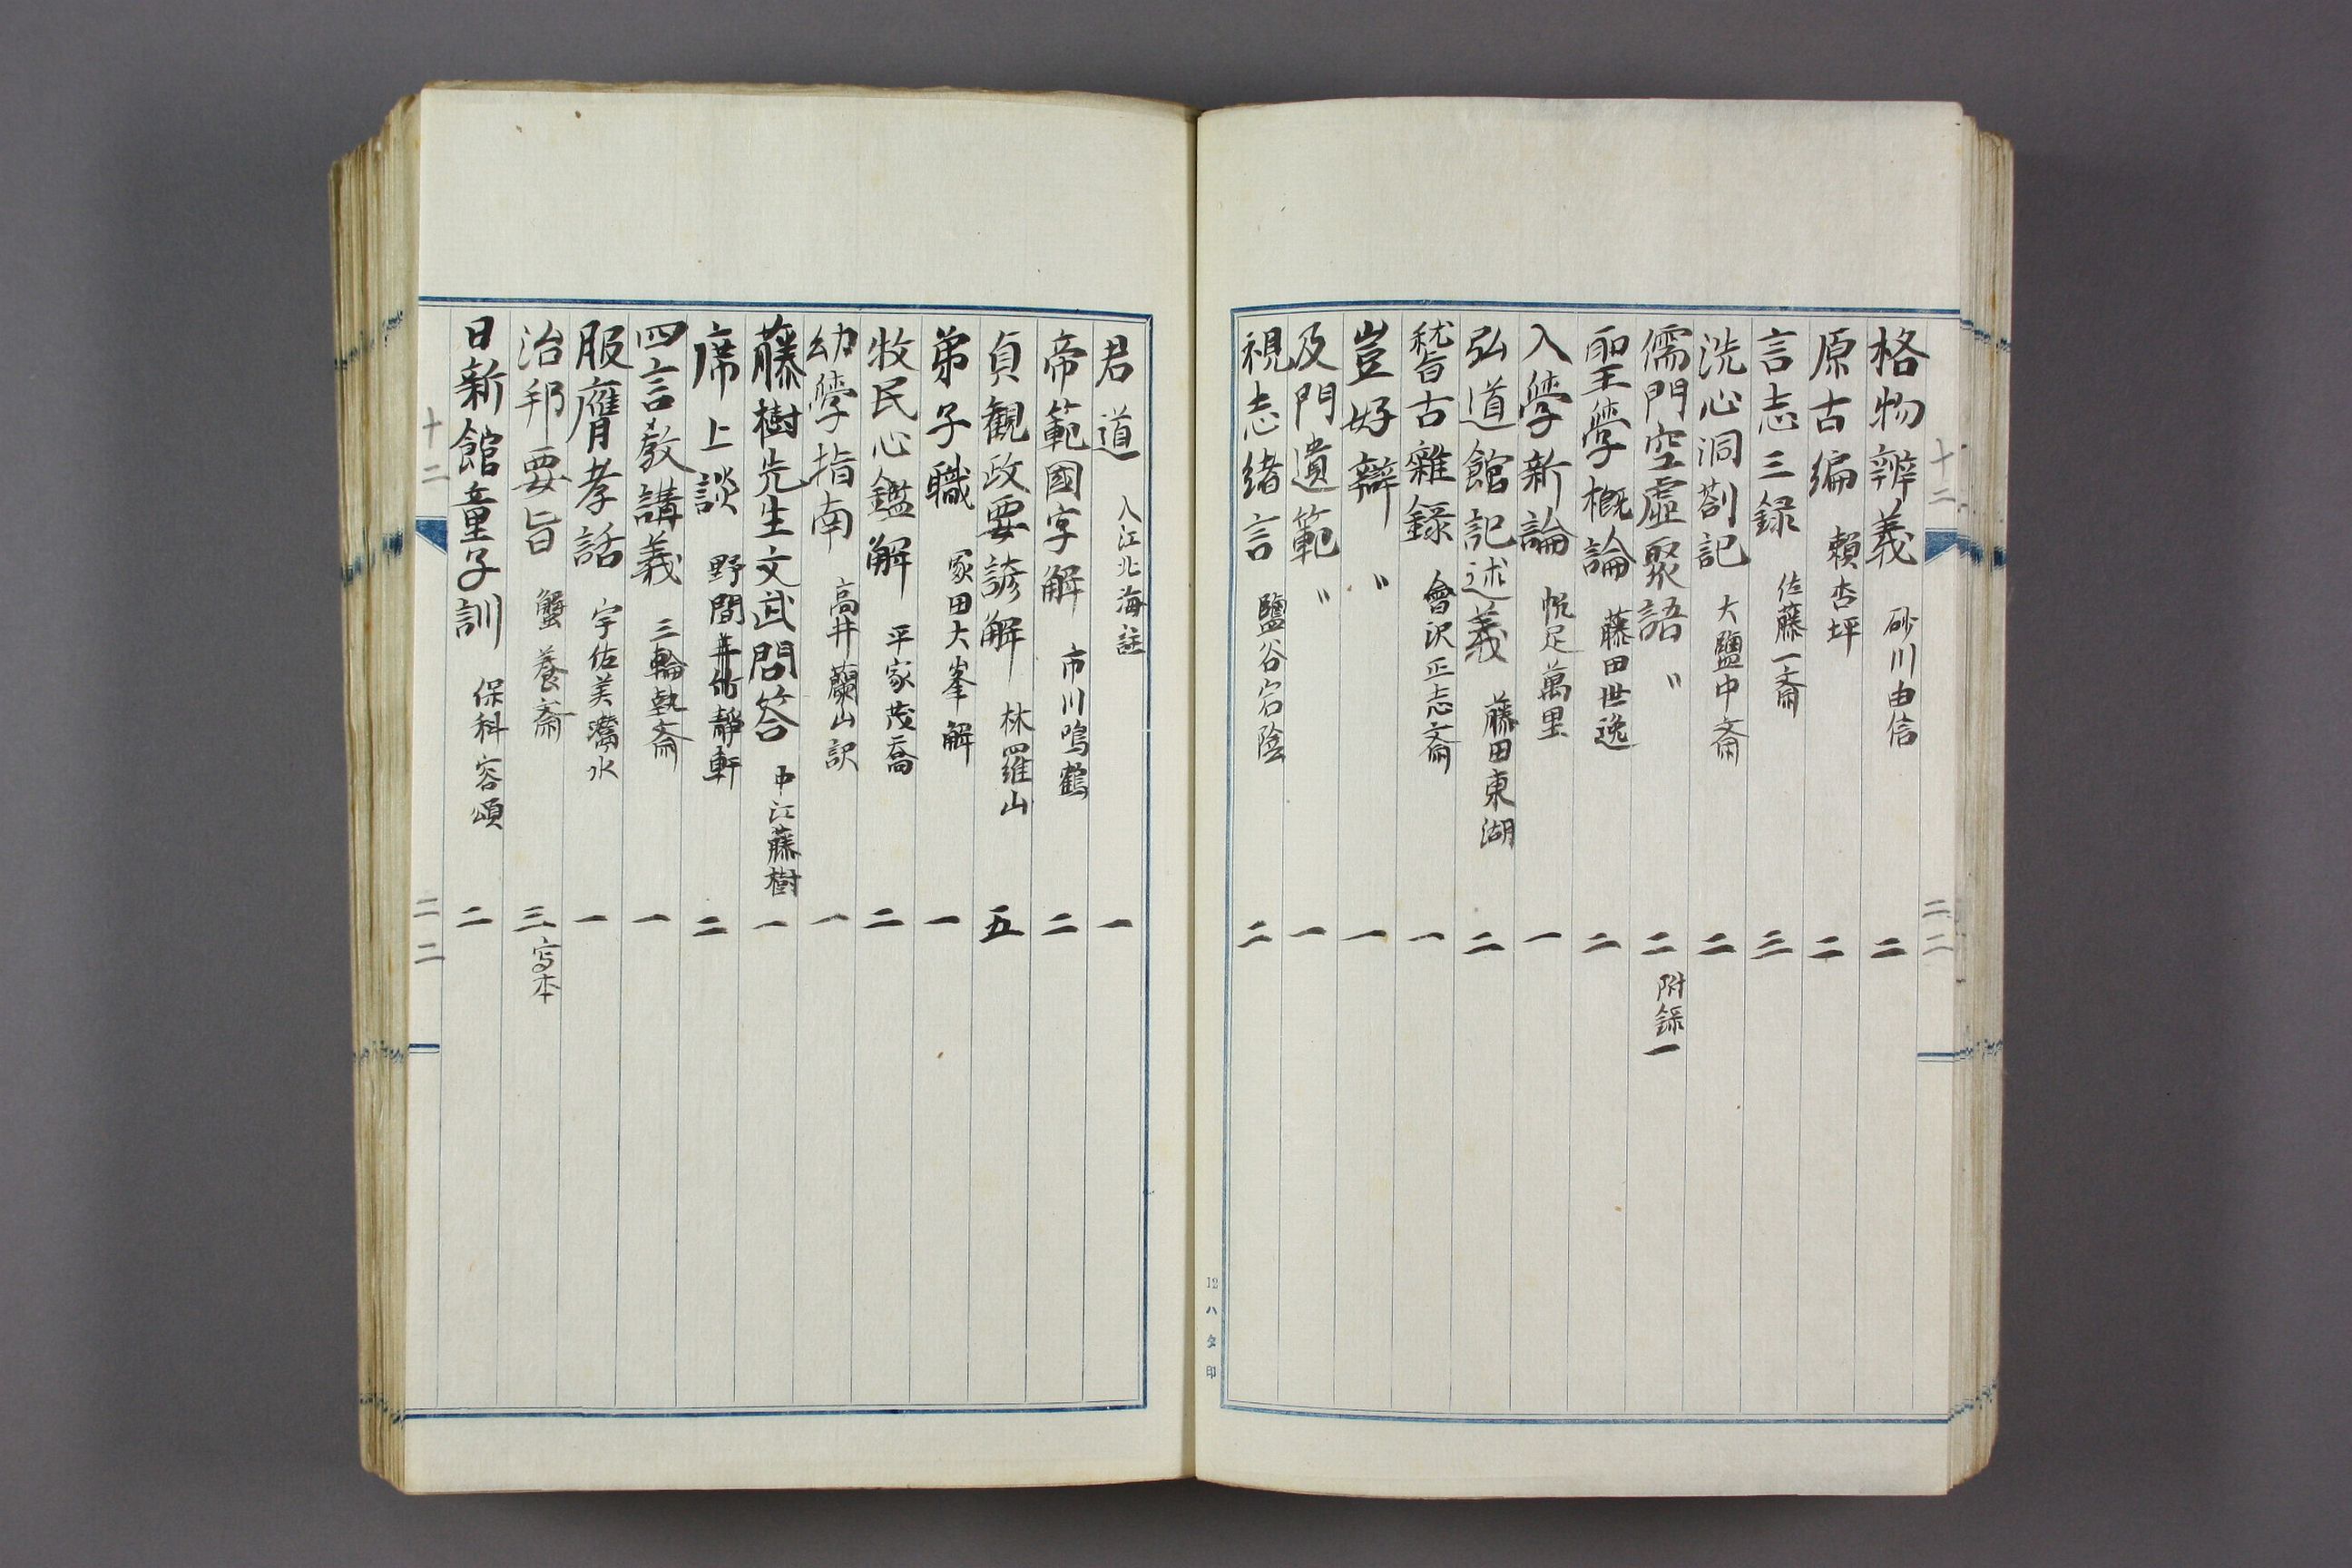 十二
二二
格物辨義 砂川由信 二
原古編 賴杏坪 二
言志三録 佐藤一斎 三
洗心洞剳記 大鹽中斎 二
儒門空虛聚語 〃 二 附錄一
聖學概論 藤田世逸 二
入學新論 帆足萬里 一
弘道館記述義 藤田東湖 二
稽古雜錄 會沢正志斎 一
豈好辯 〃 一
及門遺範 〃 一
視志緒言 鹽谷宕陰 二
12ハタ印
君道 入江北海註 一
帝範國字解 市川鳴鶴 二
貞観政要諺解 林羅山 五
弟子職 冢田大峯解 一
牧民心鑑解 平冢茂喬 二
幼學指南 高井蘭山訳 一
藤樹先生文武問答 中江藤樹 一
席上談 野間靜軒 二
四言教講義 三輪執斎 一
服膺孝話 宇佐美灊水 一
治邦要旨 蟹養斎 三 写本
日新館童子訓 保科容頌 二
十二
二二